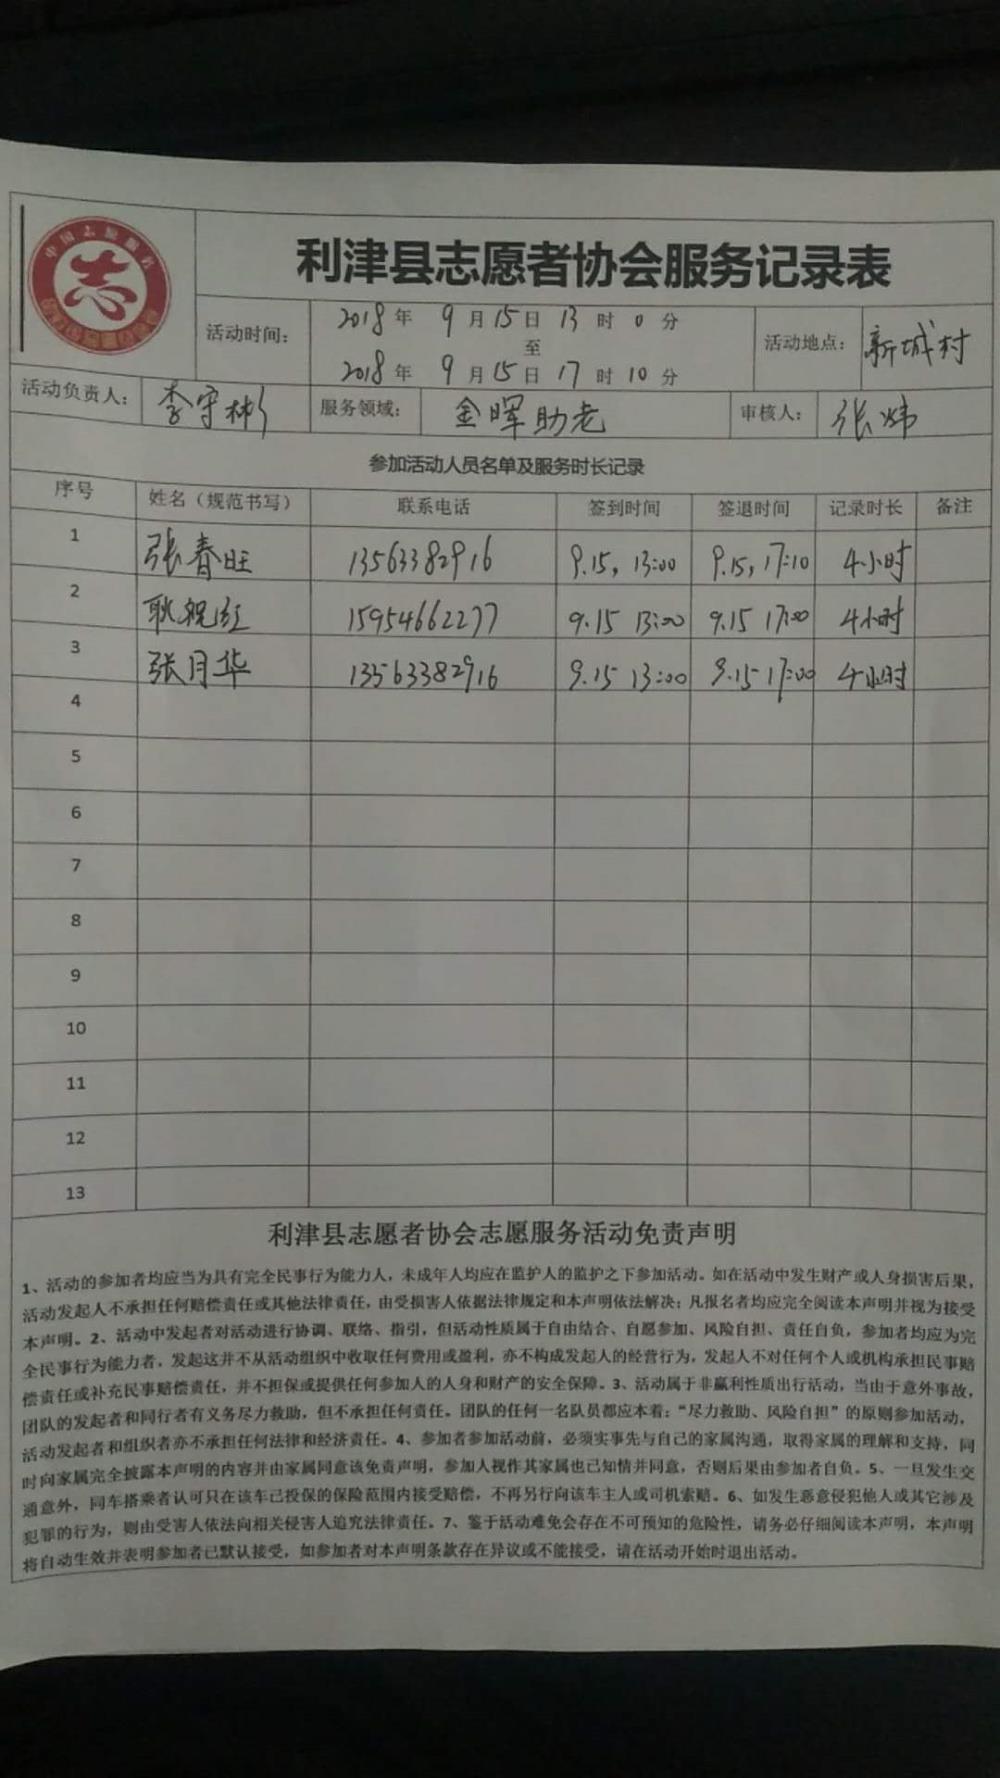 中国志愿服务
志
利津县志愿者协会服务记录表
活动时间:
2018年 9月15日 13时 0分
至
2018年 9月15日 17时 10分
活动地点:
新城村
活动负责人:
李守彬
服务领域:
金晖助老
审核人:
张炜
参加活动人员名单及服务时长记录
序号 姓名（规范书写） 联系电话 签到时间 签退时间 记录时长 备注
1 张春旺 13563382916 9.15, 13:00 9.15, 17:10 4小时
2 耿祝红 15954662277 9.15 13:00 9.15 17:00 4小时
3 张月华 13563382916 9.15 13:00 9.15 17:00 4小时
4
5
6
7
8
9
10
11
12
13
利津县志愿者协会志愿服务活动免责声明
1、活动的参加者均应当为具有完全民事行为能力人，未成年人均应在监护人的监护之下参加活动。如在活动中发生财产或人身损害后果，
活动发起人不承担任何赔偿责任或其他法律责任，由受损害人依据法律规定和本声明依法解决；凡报名者均应完全阅读本声明并视为接受
本声明。2、活动中发起者对活动进行协调、联络、指引，但活动性质属于自由结合、自愿参加、风险自担、责任自负，参加者均应为完
全民事行为能力者，发起这并不从活动组织中收取任何费用或盈利，亦不构成发起人的经营行为，发起人不对任何个人或机构承担民事赔
偿责任或补充民事赔偿责任，并不担保或提供任何参加人的人身和财产的安全保障。3、活动属于非赢利性质出行活动，当由于意外事故，
团队的发起者和同行者有义务尽力救助，但不承担任何责任。团队的任何一名队员都应本着：“尽力救助、风险自担”的原则参加活动，
活动发起者和组织者亦不承担任何法律和经济责任。4、参加者参加活动前，必须实事先与自己的家属沟通，取得家属的理解和支持，同
时向家属完全披露本声明的内容并由家属同意该免责声明，参加人视作其家属也已知情并同意，否则后果由参加者自负。5、一旦发生交
通意外，同车搭乘者认可只在该车已投保的保险范围内接受赔偿，不再另行向该车主人或司机索赔。6、如发生恶意侵犯他人或其它涉及
犯罪的行为，则由受害人依法向相关侵害人追究法律责任。7、鉴于活动难免会存在不可预知的危险性，请务必仔细阅读本声明，本声明
将自动生效并表明参加者已默认接受，如参加者对本声明条款存在异议或不能接受，请在活动开始时退出活动。